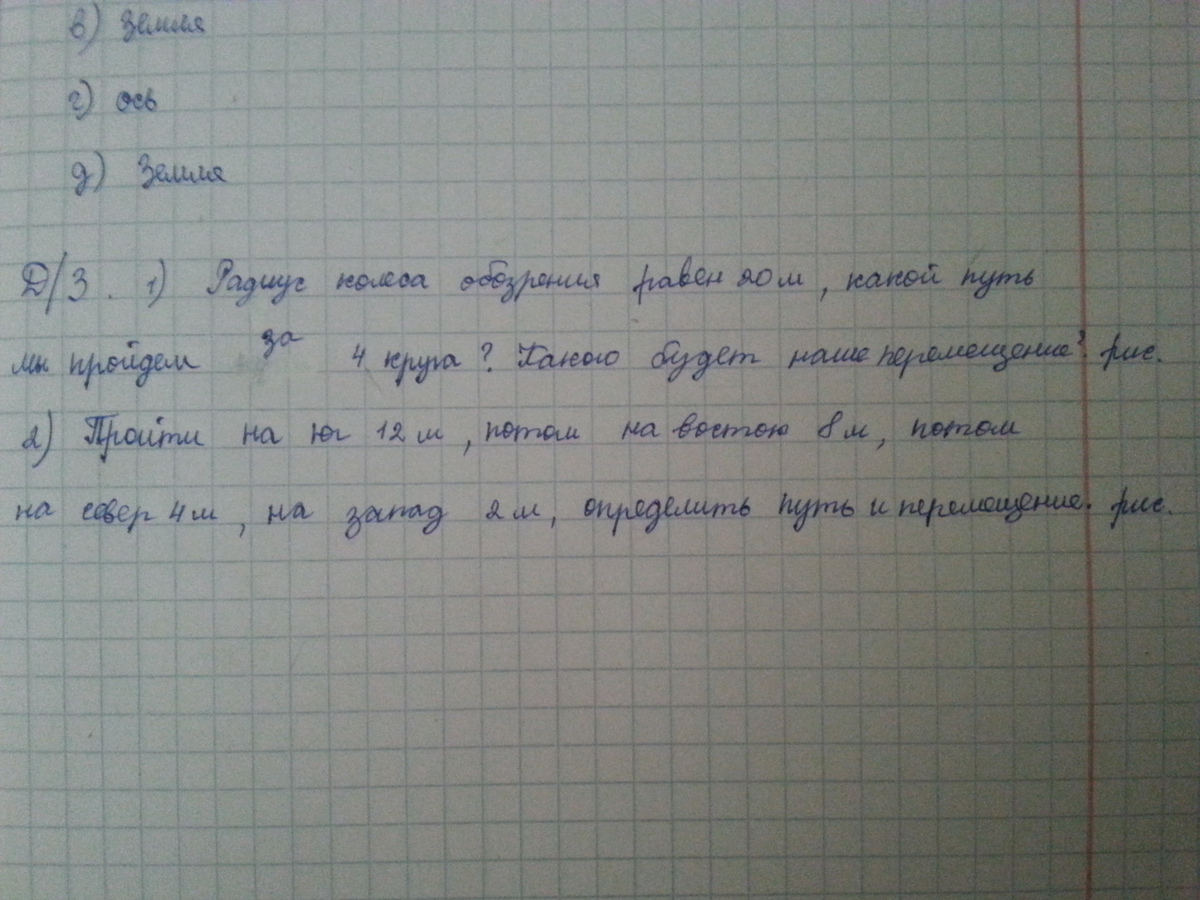 в) Земля
г) ось
д) Земля
Д/З. 1) Радиус колеса обозрения равен 20 м, какой путь
мы пройдем за 4 круга? Каково будет наше перемещение? рис.
2) Пройти на юг 12 м, потом на восток 8 м, потом
на север 4 м, на запад 2 м, определить путь и перемещение. рис.